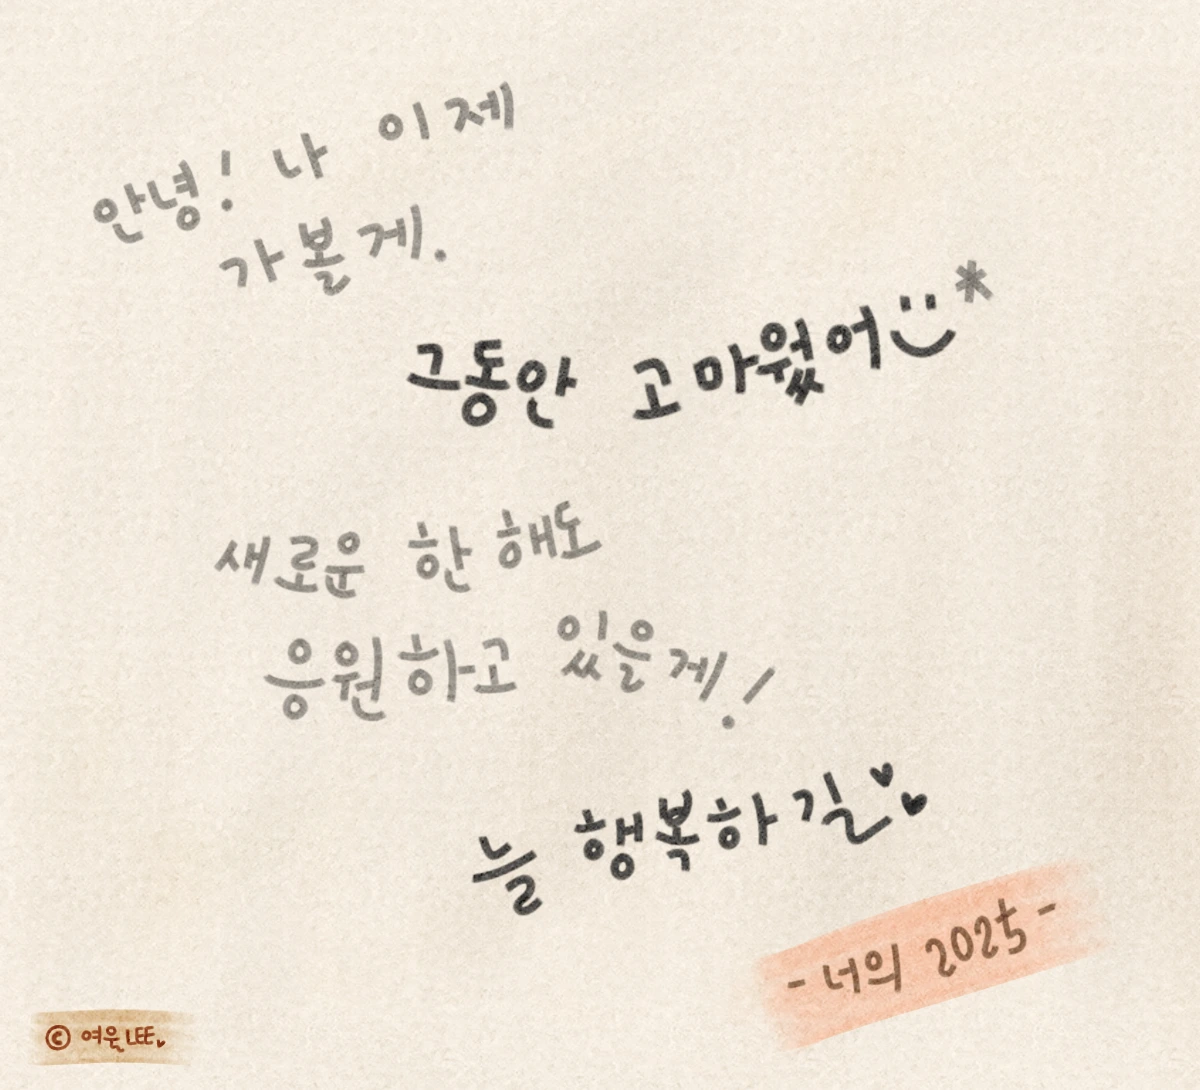 안녕! 나 이제
가볼게.
그동안 고마웠어
새로운 한 해도
응원하고 있을게!
늘 행복하길
- 너의 2025 -
© 여운LEE